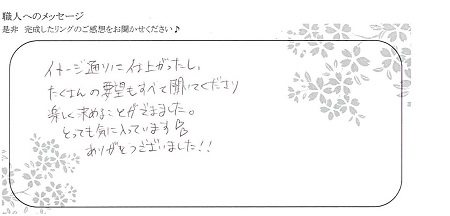 職人へのメッセージ
是非 完成したリングのご感想をお聞かせください♪
イメージ通りに仕上がったし、
たくさんの要望もすべて聞いてくださり
楽しく求めることができました。
とっても気に入っています♡
ありがとうございました!!